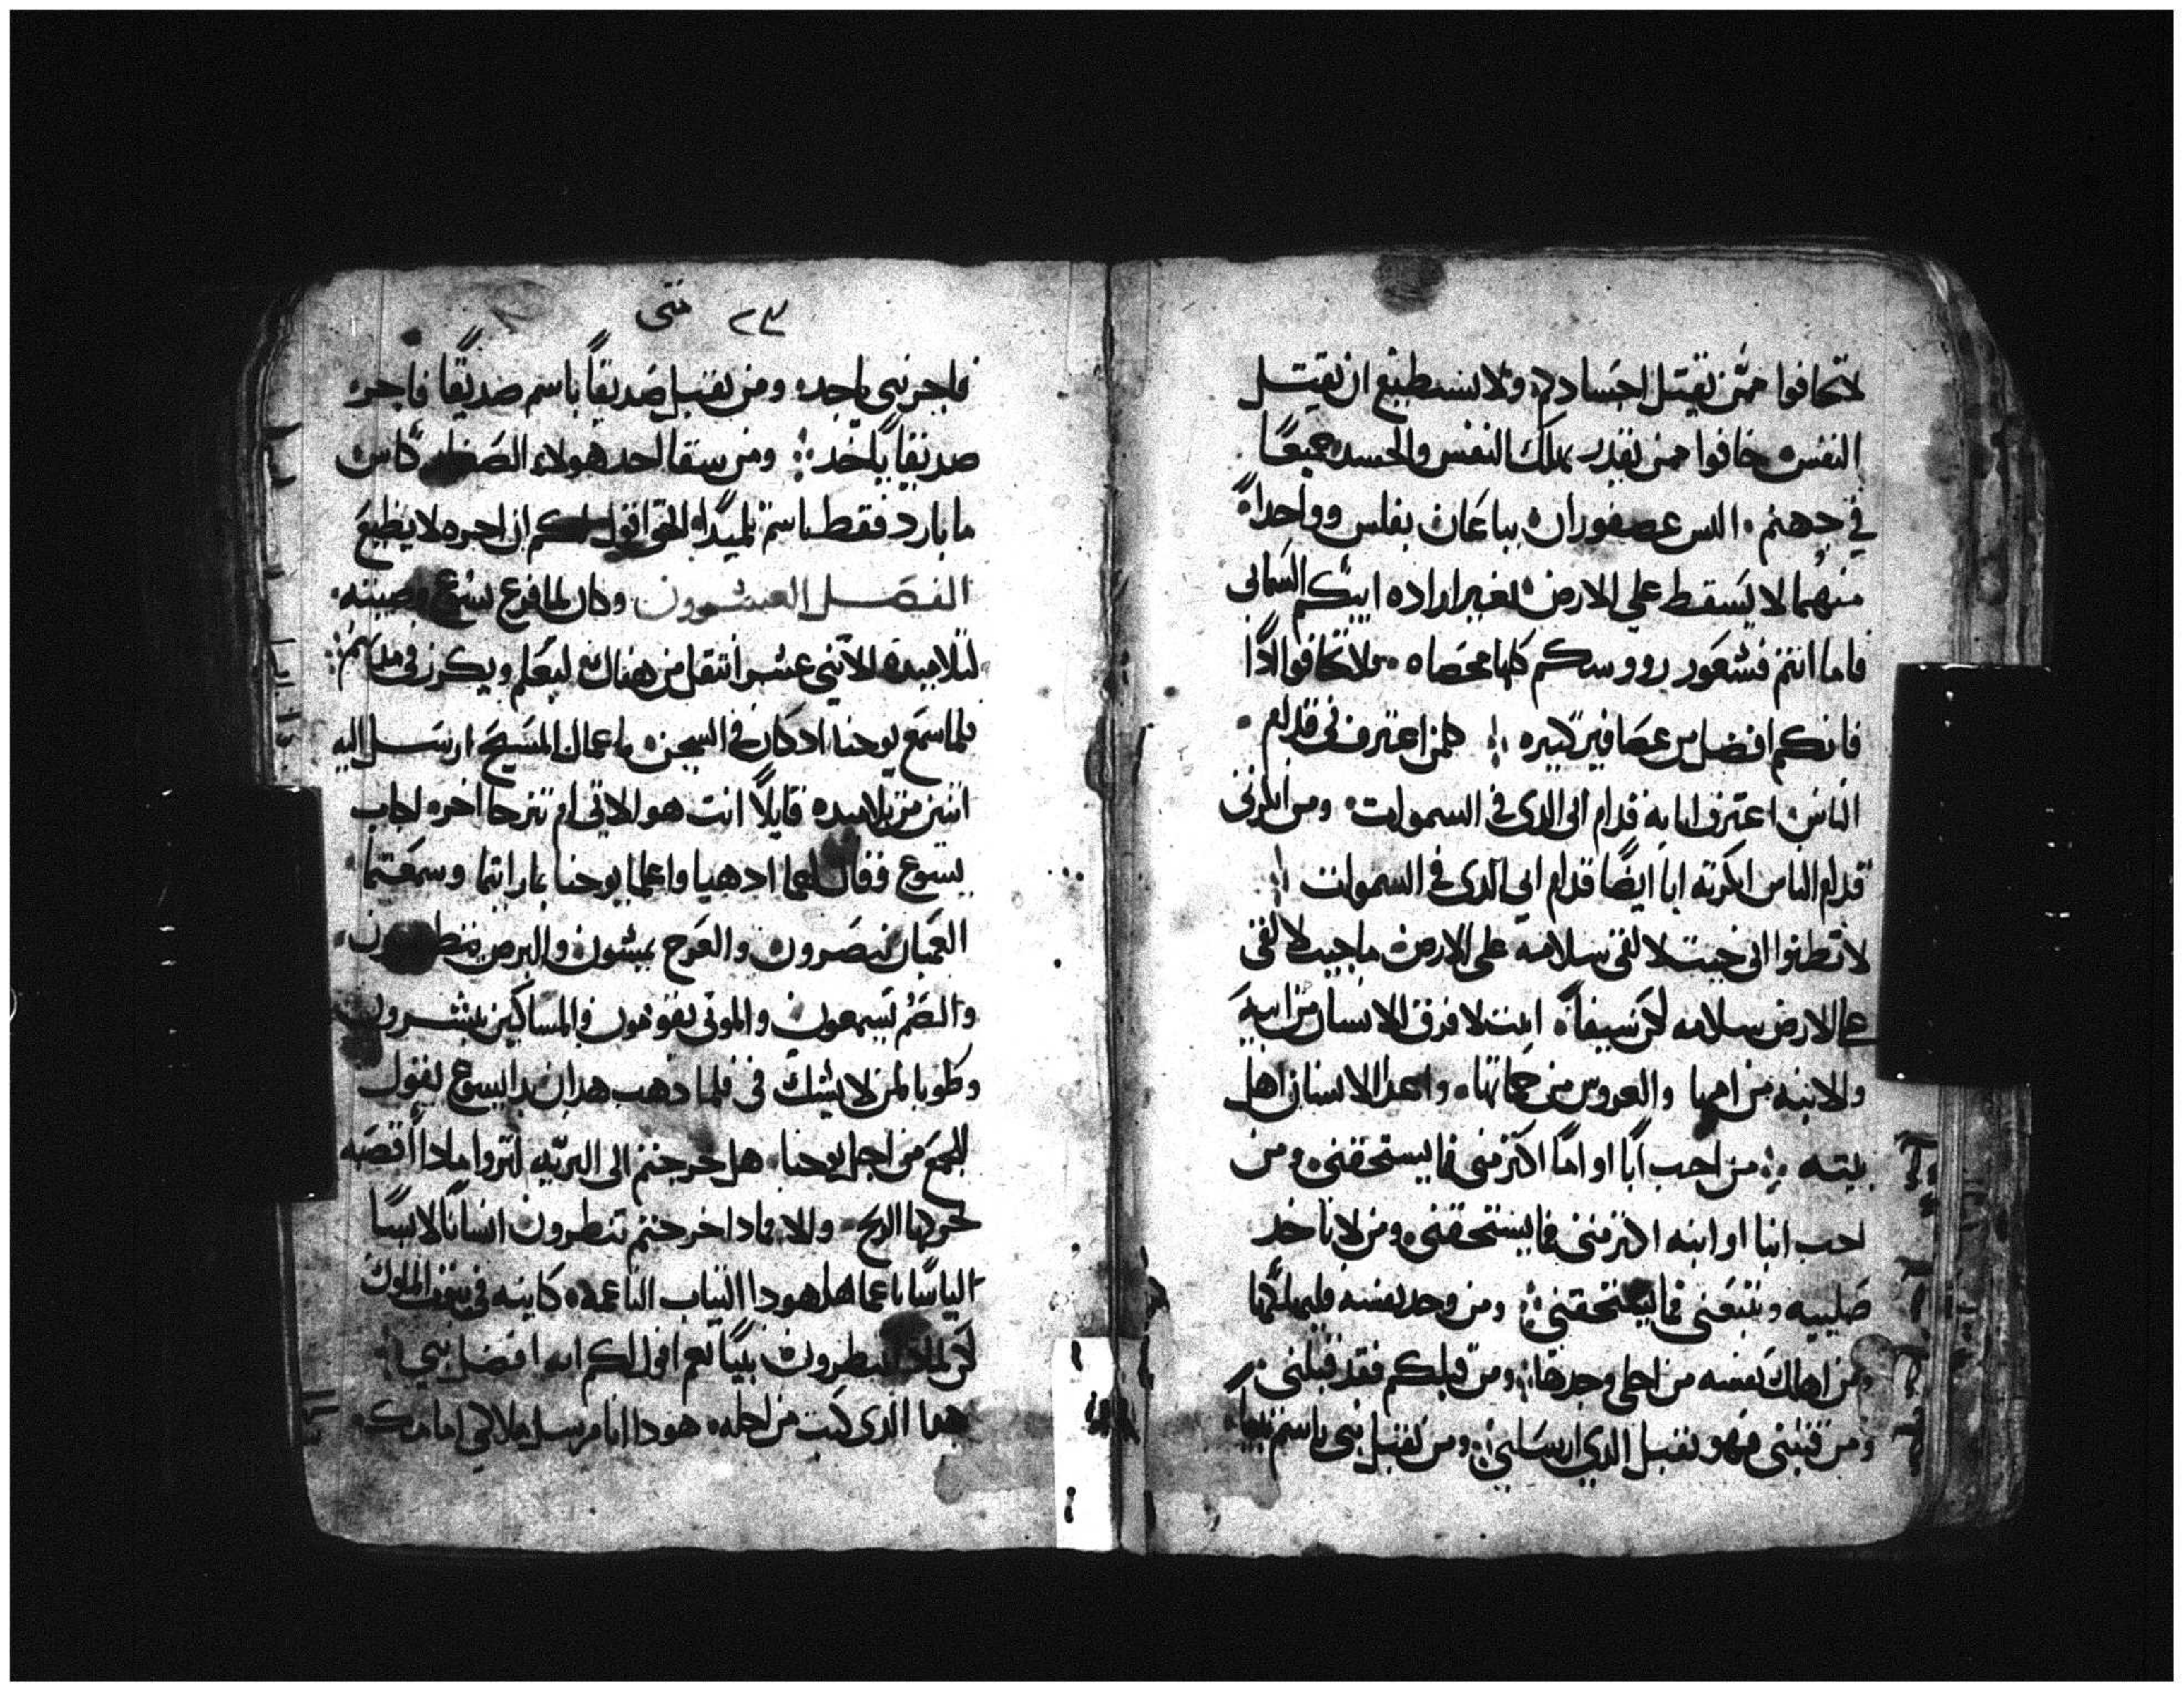 لاتخافوا ممن يقتل اجسادكم ولا يستطيع ان يقتل
النفس خافوا ممن يقدر يهلك النفس والجسد جميعًا
في جهنم اليس عصفوران يباعان بفلس وواحداً
منهما لا يسقط علي الارض بغير اراده ابيكم السماني
فاما انتم فشعور رووسكم كلها محصاه فلا تخافوا اذًا
فانكم افضل من عصافير كثيره فمن اعترف بي قدام
الناس اعترف انا به قدام ابي الدى في السموات ومن انكرني
قدام الناس انكرته انا ايضًا قدام ابي الدى في السموات
لا تظنوا اني جيت لالقى سلامه على الارض ما جيت لالقى
على الارض سلامه لكن سيفاً اتيت لافرق الانسان من ابيه
والابنه من امها والعروس من حماتها واعدا الانسان اهل
بيته من احب ابًا او امًا اكثر منى فما يستحقنى ومن
احب ابنا او ابنه اكثر منى فما يستحقنى ومن لا ياخد
صليبه ويتبعنى فما يستحقنى ومن وجد نفسه فليهلكها
ومن اهلك نفسه من اجلى وجدها ومن قبلكم فقد قبلنى
ومن قبلنى فهو يقبل الدي ارسلني ومن يقبل نبى باسم نبيا
٢٣ متى
فاجر نبى ياخده ومن يقبل صديقاً باسم صديقًا فاجر
صديقاً ياخد ومن سقا احد هولاء الصغار كاس
ما بارد فقط باسم تلميدًا الحق اقول لكم ان اجره لا يضيع
الفصل العشرون وكان لما فرغ يسوع وصيته
لتلاميده الاثني عشر انتقل من هناك ليعلم ويكرز في مدنهم
فلما سمع يوحنا اد كان في السجن باعمال المسيح ارسل اليه
اثنين من تلاميده قايلاً انت هو الاتي ام نترجا اخر اجاب
يسوع فقال لهما ادهبا واعلما يوحنا بما رايتما وسمعتما
العميان يبصرون والعرج يمشون والبرص يتطهرون
والصم يسمعون والموتى يقومون والمساكين يبشرون
وطوبا لمن لا يشك فى فلما دهب هدان بدا يسوع يقول
للجمع من اجل يوحنا هل خرجتم الى البريه لتروا مادا أقصبه
تحركها الريح والا فمادا خرجتم تنظرون انسانًا لابسًا
لباسًا ناعما هل هودا التياب الناعمه كاينه في بيوت الملوك
لكن لمادا تنظرون نبيًا نعم اقول لكم انه افضل نبي
هدا الدى كتب من اجله هودا انا مرسل ملاكي امامك